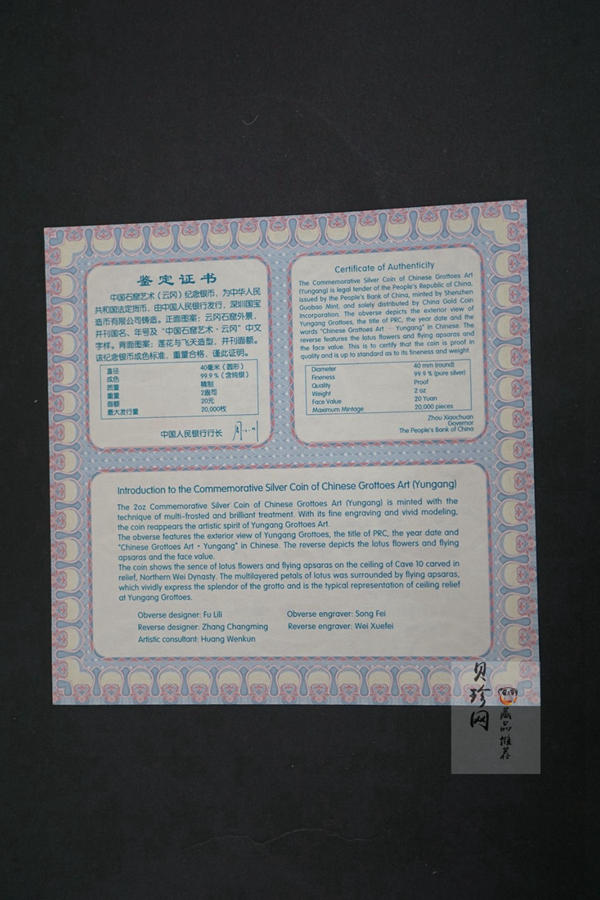 鉴定证书
中国石窟艺术（云冈）纪念银币，为中华人民
共和国法定货币，由中国人民银行发行，深圳国宝
造币有限公司铸造。正面图案：云冈石窟外景，
并刊国名、年号及“中国石窟艺术·云冈”中文
字样。背面图案：莲花与飞天造型，并刊面额。
该纪念银币成色标准，重量合格，谨此证明。
直径 40毫米（圆形）
成色 99.9%（含纯银）
质量 精制
重量 2盎司
面额 20元
最大发行量 20,000枚
中国人民银行行长
Certificate of Authenticity
The Commemorative Silver Coin of Chinese Grottoes Art
(Yungang) is legal tender of the People's Republic of China,
issued by the People's Bank of China, minted by Shenzhen
Guobao Mint, and solely distributed by China Gold Coin
Incorporation. The obverse depicts the exterior view of
Yungang Grottoes, the title of PRC, the year date and the
words "Chinese Grottoes Art · Yungang" in Chinese. The
reverse features the lotus flowers and flying apsaras and
the face value. This is to certify that the coin is proof in
quality and is up to standard as to its fineness and weight
Diameter 40 mm (round)
Fineness 99.9 % (pure silver)
Quality Proof
Weight 2 oz
Face Value 20 Yuan
Maximum Mintage 20,000 pieces
Zhou Xiaochuan
Governor
The People's Bank of China
Introduction to the Commemorative Silver Coin of Chinese Grottoes Art (Yungang)
The 2oz Commemorative Silver Coin of Chinese Grottoes Art (Yungang) is minted with the
technique of multi-frosted and brilliant treatment. With its fine engraving and vivid modeling,
the coin reappears the artistic spirit of Yungang Grottoes Art.
The obverse features the exterior view of Yungang Grottoes, the title of PRC, the year date and
"Chinese Grottoes Art · Yungang" in Chinese. The reverse depicts the lotus flowers and flying
apsaras and the face value.
The coin shows the sence of lotus flowers and flying apsaras on the ceiling of Cave 10 carved in
relief, Northern Wei Dynasty. The multilayered petals of lotus was surrounded by flying apsaras,
which vividly express the splendor of the grotto and is the typical representation of ceiling relief
at Yungang Grottoes.
Obverse designer: Fu Lili Obverse engraver: Song Fei
Reverse designer: Zhang Changming Reverse engraver: Wei Xuefei
Artistic consultant: Huang Wenkun
贝珍网
藏品推荐